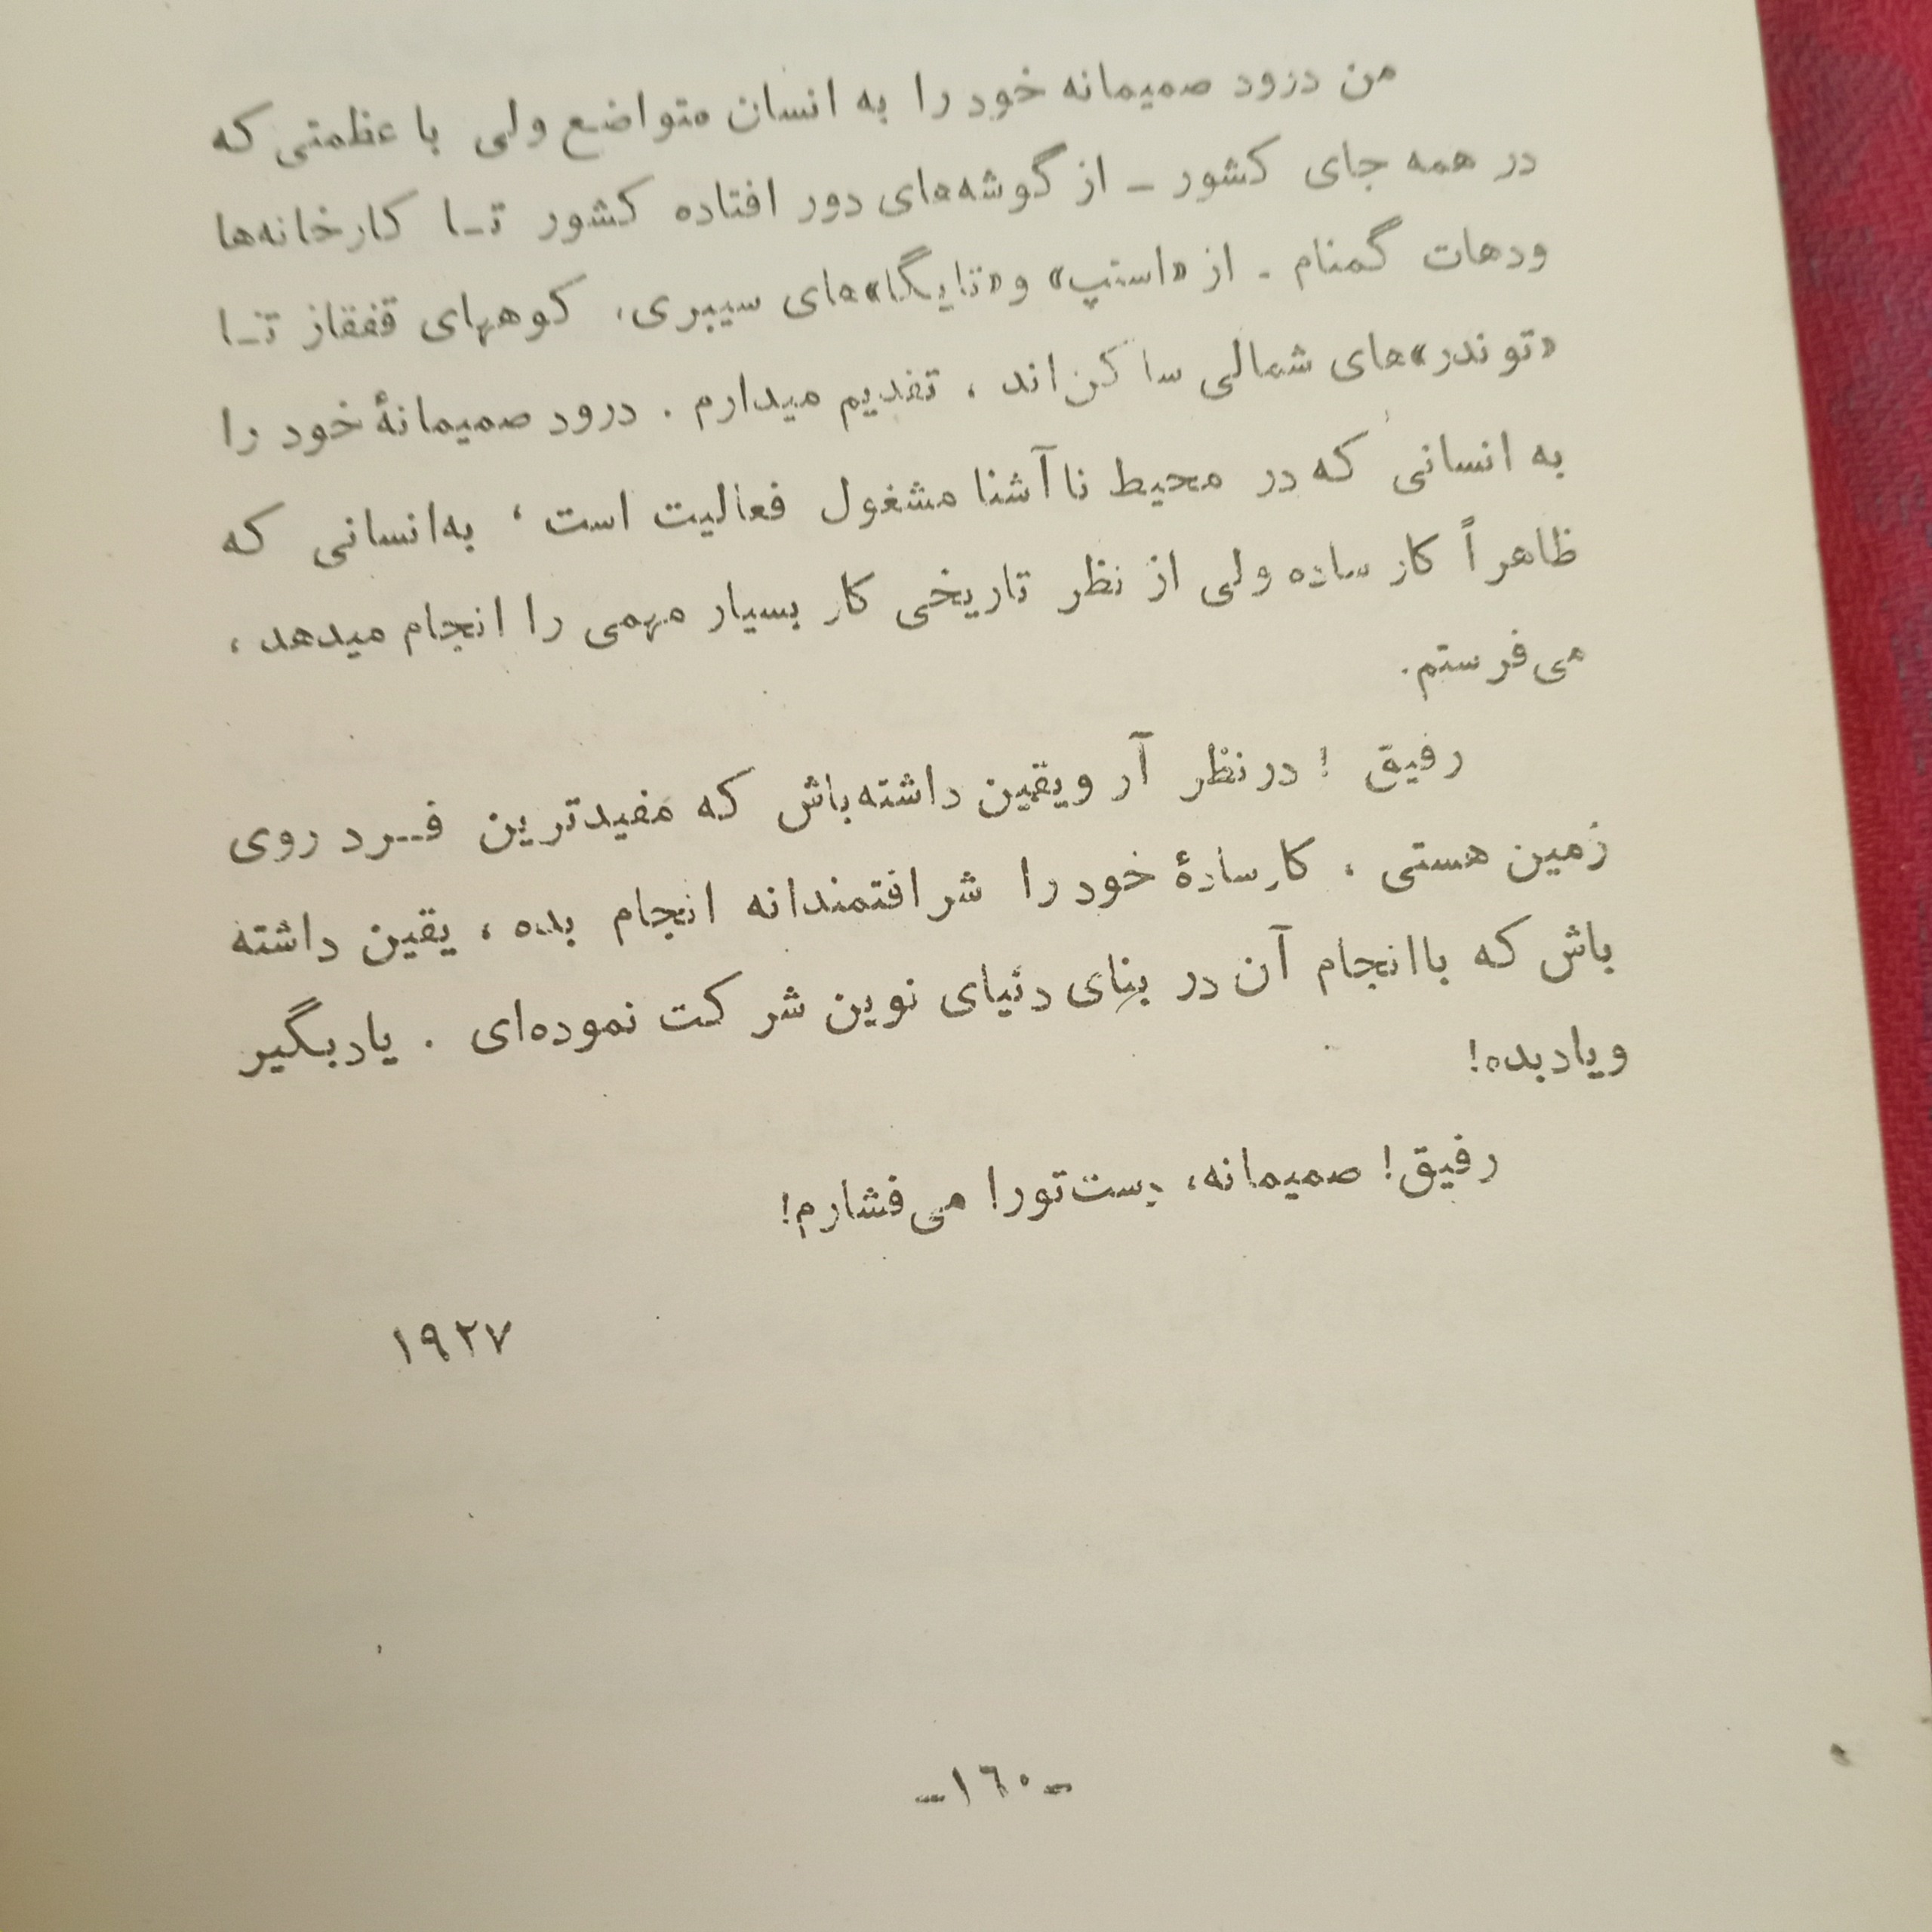 من درود صمیمانه خود را به انسان متواضع ولی با عظمتی که
در همه جای کشور ـ از گوشه‌های دور افتاده کشور تـا کارخانه‌ها
ودهات گمنام ـ از «استپ» و «تایگا»های سیبری، کوههای قفقاز تـا
«توندر»های شمالی ساکن‌اند، تقدیم میدارم. درود صمیمانهٔ خود را
به انسانی که در محیط ناآشنا مشغول فعالیت است، به‌انسانی که
ظاهراً کار ساده ولی از نظر تاریخی کار بسیار مهمی را انجام میدهد،
می‌فرستم.
رفیق! درنظر آر ویقین داشته‌باش که مفیدترین فـرد روی
زمین هستی، کارسادهٔ خود را شرافتمندانه انجام بده، یقین داشته
باش که باانجام آن در بنای دنیای نوین شرکت نموده‌ای. یادبگیر
ویادبده!
رفیق! صمیمانه، دست‌تورا می‌فشارم!
۱۹۲۷
-۱٦۰-